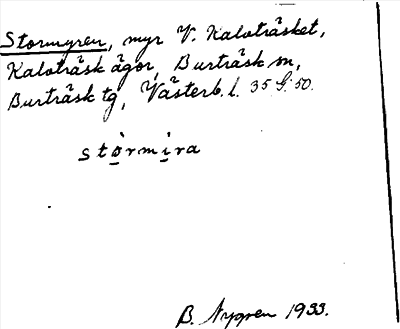 Stormyren, myr V. Kaloträsket,
Kaloträsk ägor, Burträsk sn,
Burträsk tg, Västerb. l. 35 S: 50.
stòrmira
B. Nygren 1933.